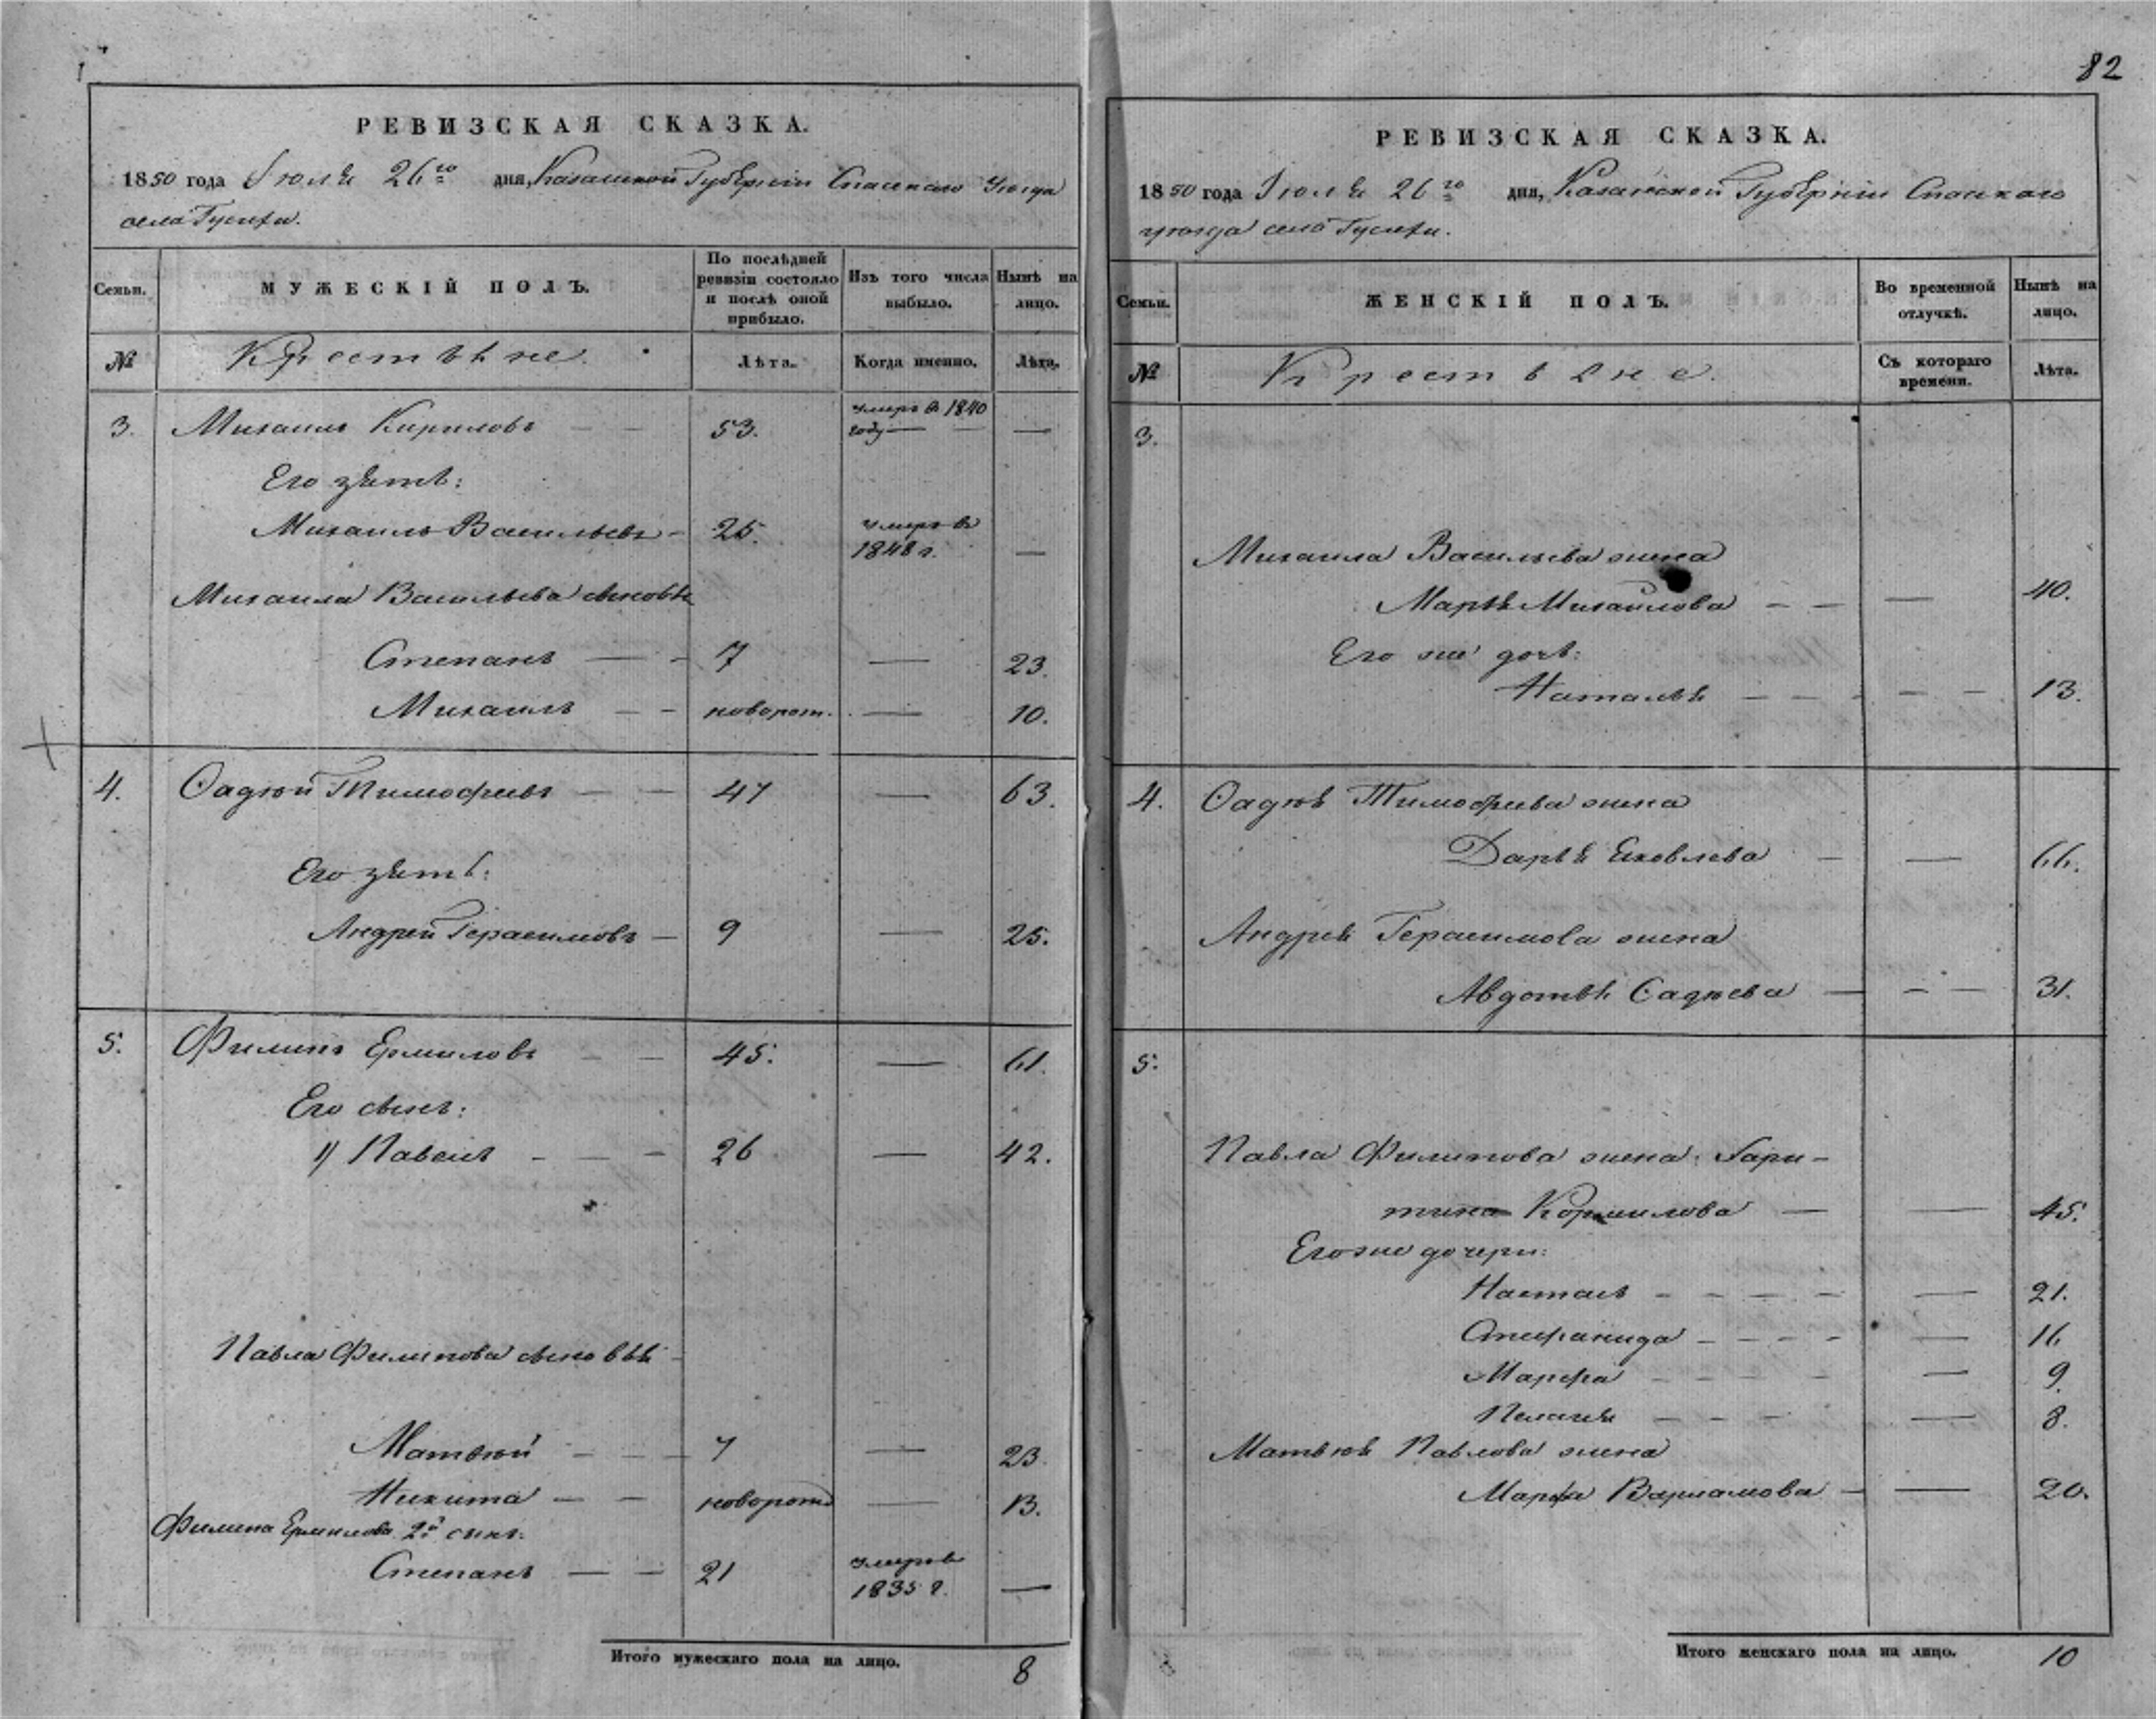 РЕВИЗСКАЯ СКАЗКА.
1850 года Іюля 26го дня, Казанской Губерніи Спаскаго Уезда
села Гусихи.
Семьи. МУЖЕСКІЙ ПОЛЪ. По послѣдней ревизіи состояло и послѣ оной прибыло. Изъ того числа выбыло. Нынѣ на лицо.
№ Крестьяне. Лѣта. Когда именно. Лѣта.
3. Михаилъ Кириловъ — — 53. умеръ в 1840 году — — —
Его зять:
Михаилъ Васильевъ — 25. умеръ в 1848 г. —
Михаила Васильева сыновья
Степанъ — - 7 — 23.
Михаилъ — - новорож. — 10.
4. Фадѣй Тимофеевъ — — 47 — 63.
Его зять:
Андрей Герасимовъ — 9 — 25.
5. Филипъ Ермиловъ — — 45. — 61.
Его сынъ:
1) Павелъ - — — 26 — 42.
Павла Филипова сыновья -
Матвѣй — — — 7 — 23.
Никита — — новорожд — 13.
Филипа Ермилова 2й сынъ:
Степанъ — — 21 умеръ в 1835 г. —
Итого мужескаго пола на лицо. 8
82
РЕВИЗСКАЯ СКАЗКА.
1850 года Іюля 26го дня, Казанской Губерніи Спаскаго
уезда села Гусихи.
Семьи. ЖЕНСКІЙ ПОЛЪ. Во временной отлучкѣ. Нынѣ на лицо.
№ Крестьяне. Съ котораго времени. Лѣта.
3.
Михаила Васильева жена
Марья Михаилова — — — 40.
Его же дочь:
Наталья — — - — — 13.
4. Фадѣя Тимофеева жена
Дарья Яковлева — — 66.
Андрея Герасимова жена
Авдотья Фадѣева — — — 31.
5.
Павла Филипова жена Хари-
тина Кормилова — — 45.
Его же дочери:
Настась — — — — — 21.
Стефанида — — — — — 16
Марфа — — — — — 9.
Пелагея — — — — 8.
Матвѣя Павлова жена
Марфа Варламова — — 20.
Итого женскаго пола на лицо. 10